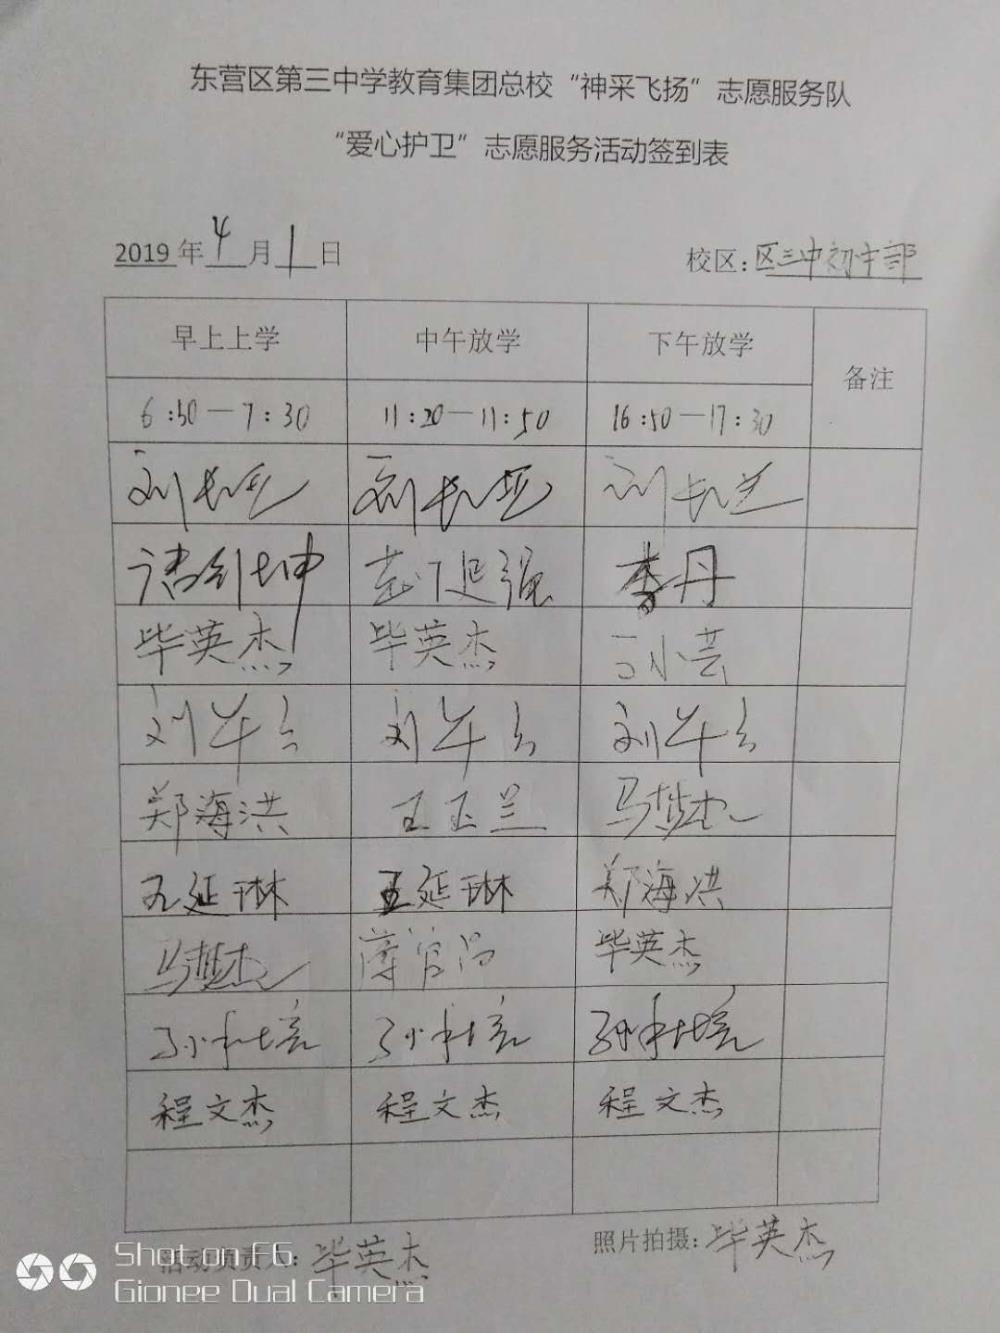 东营区第三中学教育集团总校“神采飞扬”志愿服务队
“爱心护卫”志愿服务活动签到表
2019年4月1日 校区:区三中初中部
早上上学 中午放学 下午放学 备注
6:50—7:30 11:20—11:50 16:50—17:30
刘长 刘长 刘长
李丹
毕英杰 毕英杰
刘 刘 刘
郑海洪 王玉兰 马梦杰
王延琳 王延琳 郑海洪
马梦杰 薄官昌 毕英杰
孙秋培 孙秋培 孙秋培
程文杰 程文杰 程文杰
活动负责人:毕英杰 照片拍摄:毕英杰
Shot on F6
Gionee Dual Camera